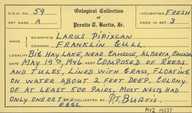 O.D. No. 59
Oological Collection of
Occasion FRESH
Set Mark A
Peralto T. Burtis, Jr.
No. of Eggs 3
Scientific Name LARUS PIPIXCAN
Name FRANKLIN GULL
Locality BIG HAY LAKE NEAR CAMROSE, ALBERTA, CANADA
MAY 19TH 1946 COMPOSED OF REEDS
AND TULES, LINED WITH GRASS, FLOATING
ON WATER ABOUT 2 FEET DEEP. COLONY
OF AT LEAST 500 PAIRS. MOST NESTS HAD
ONLY ONE OR TWO EGGS. P.T. BURTIS